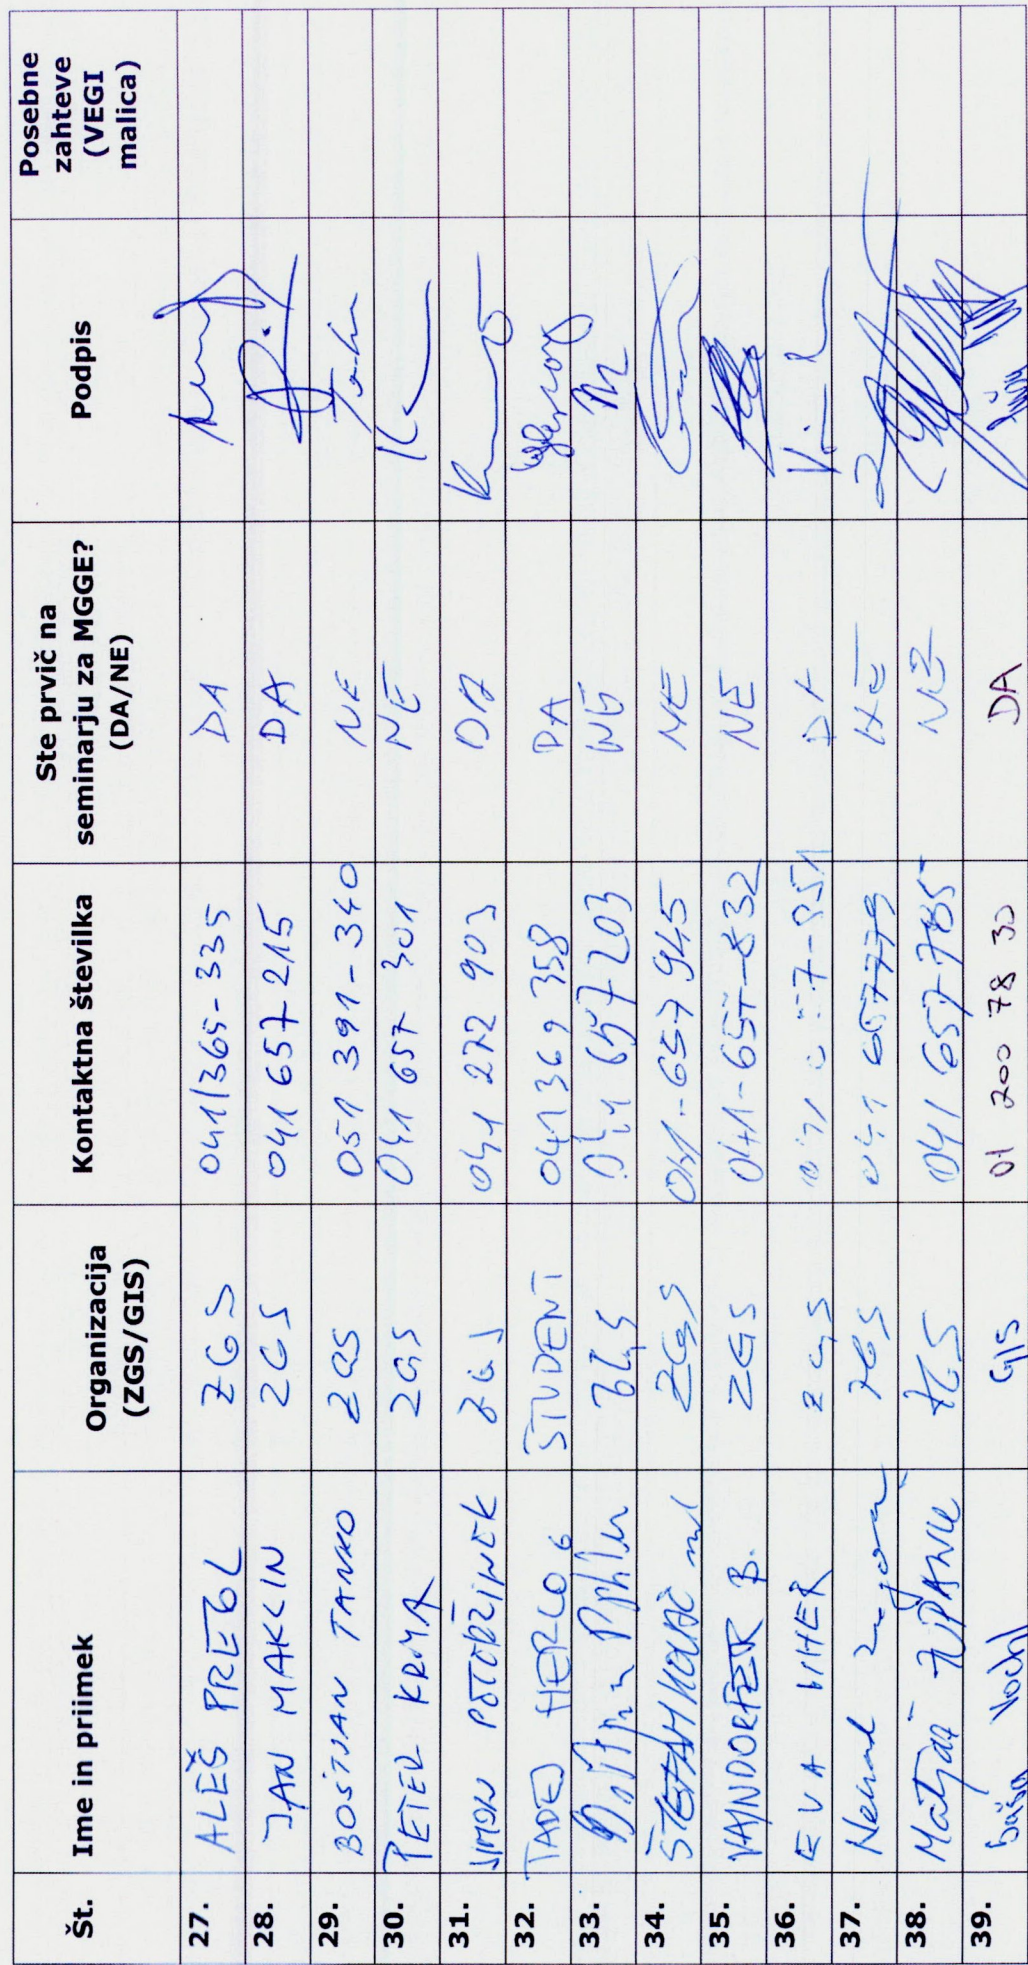 Št. Ime in priimek Organizacija (ZGS/GIS) Kontaktna številka Ste prvič na seminarju za MGGE? (DA/NE) Podpis Posebne zahteve (VEGI malica)
27. ALEŠ PREGL ZGS 041/365-335 DA
28. JAN MAKLIN ZGS 041 657 215 DA
29. BOŠTJAN TANKO ZGS 051 391-340 NE
30. PETER KRMA ZGS 041 657 301 NE
31. SIMON ZGS 041 272 903 DA
32. TADEJ HERCOG ŠTUDENT 041 369 358 DA
33. ZGS 041 657 203 NE
34. ŠTEFAN KOVAČ ml ZGS 041-657 945 NE
35. VAJNDORFER B. ZGS 041-657-832 NE
36. EVA ZGS DA
37. Nenad ZGS 041 657779 NE
38. Matjaž ŽUPANIČ ZGS 041 657-785 NE
39. GIS 01 200 78 30 DA